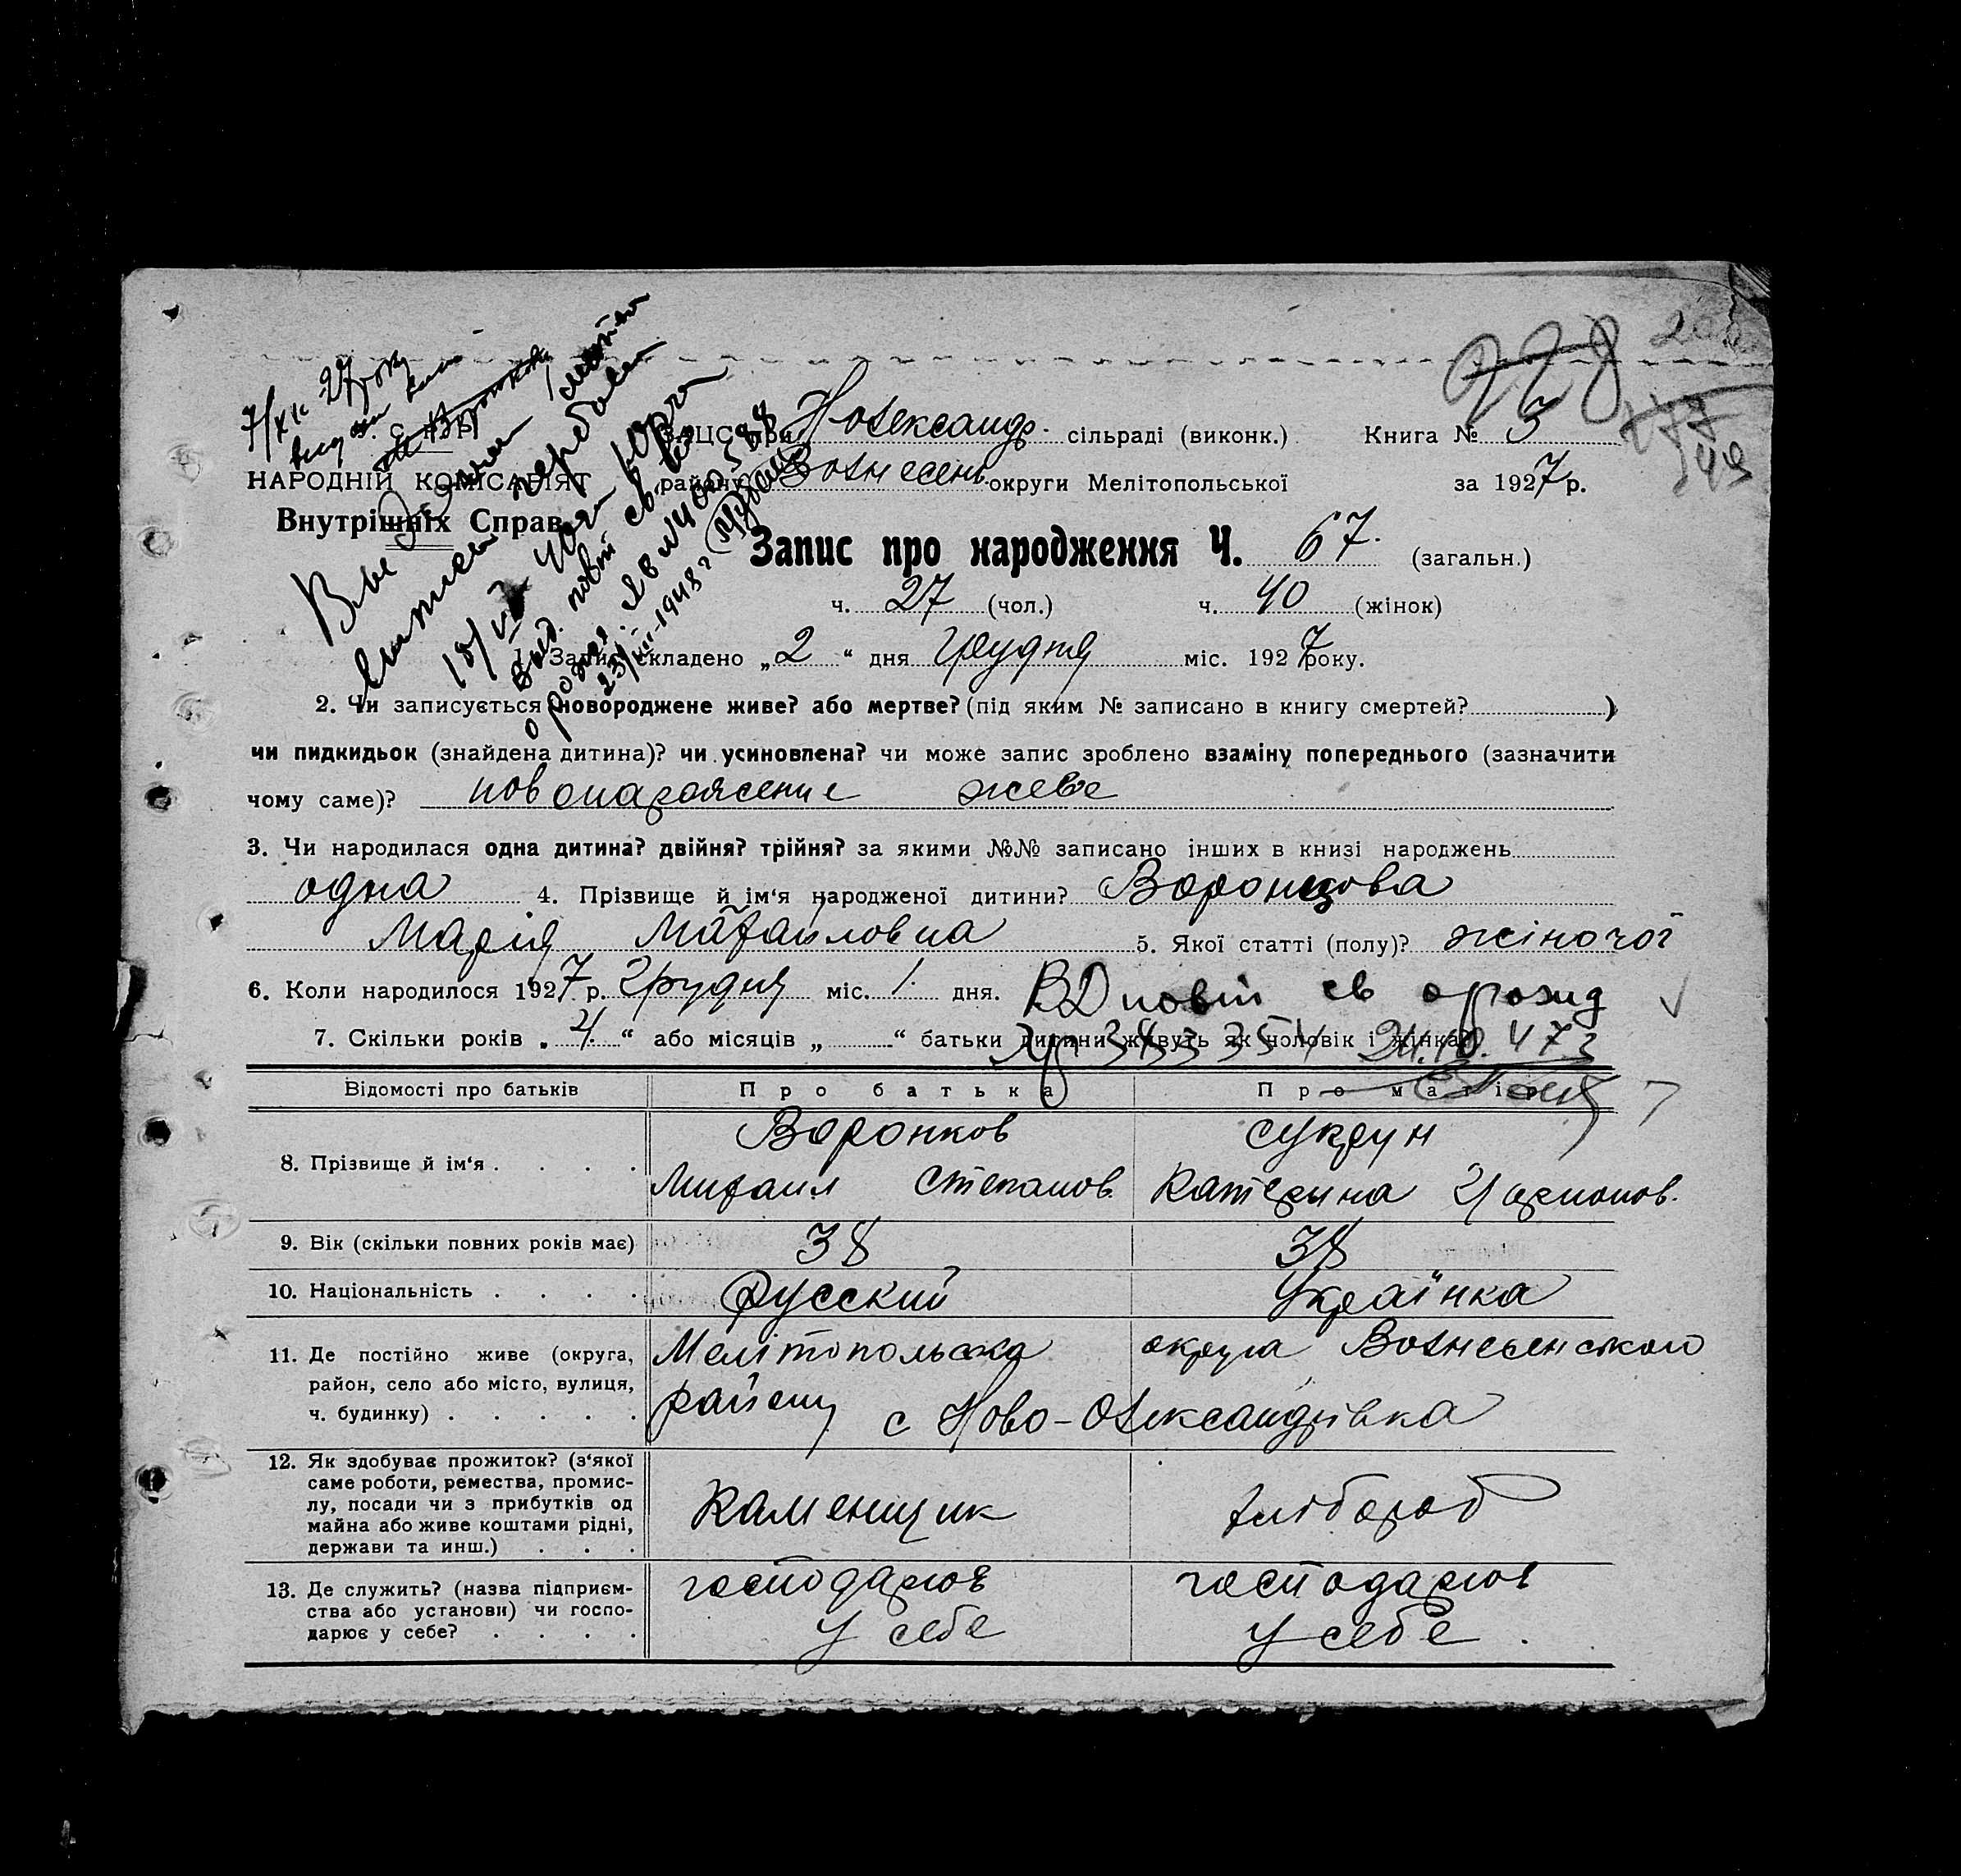 228
7/XII 27 року
У. С. Р. Р.
НАРОДНІЙ КОМІСАРІЯТ
Внутрішніх Справ
ЗАЦС при Н Олександр. сільраді (виконк.) Книга № 3
району Вознесень округи Мелітопольської за 1927 р.
Запис про народження Ч. 67. (загальн.)
ч. 27 (чол.) ч. 40 (жінок)
1. Запис складено „2“ дня грудня міс. 1927 року.
2. Чи записується новороджене живе? або мертве? (під яким № записано в книгу смертей? )
чи пидкидьок (знайдена дитина)? чи усиновлена? чи може запис зроблено взаміну попереднього (зазначити
чому саме)? новонароженне живе
3. Чи народилася одна дитина? двійня? трійня? за якими №№ записано інших в книзі народжень
одна 4. Прізвище й ім‘я народженої дитини? Воронцова
Марія Михайловна 5. Якої статті (полу)? жіночої
6. Коли народилося 1927 р. грудня міс. 1. дня. ВД повт св о рожд
7. Скільки років „4.“ або місяців „ “ батьки дитини живуть як чоловік і жінка?
Відомості про батьків Про батька Про матір
8. Прізвище й ім‘я . . . . Воронков сукрун
Михаил Степанов. Катерина Іларионов.
9. Вік (скільки повних років має) 38 38
10. Національність . . . . Русский Українка
11. Де постійно живе (округа, Мелітопольська округа Вознесенського
район, село або місто, вулиця, району с Ново-Олександрівка
ч. будинку) . . . . .
12. Як здобуває прожиток? (з‘якої
саме роботи, ремества, промис-
лу, посади чи з прибутків од Каменщик хлібороб
майна або живе коштами рідні,
держави та инш.) . . .
13. Де служить? (назва підприєм- господарює господарює
ства або установи) чи госпо- у себе у себе.
дарює у себе? . . . .